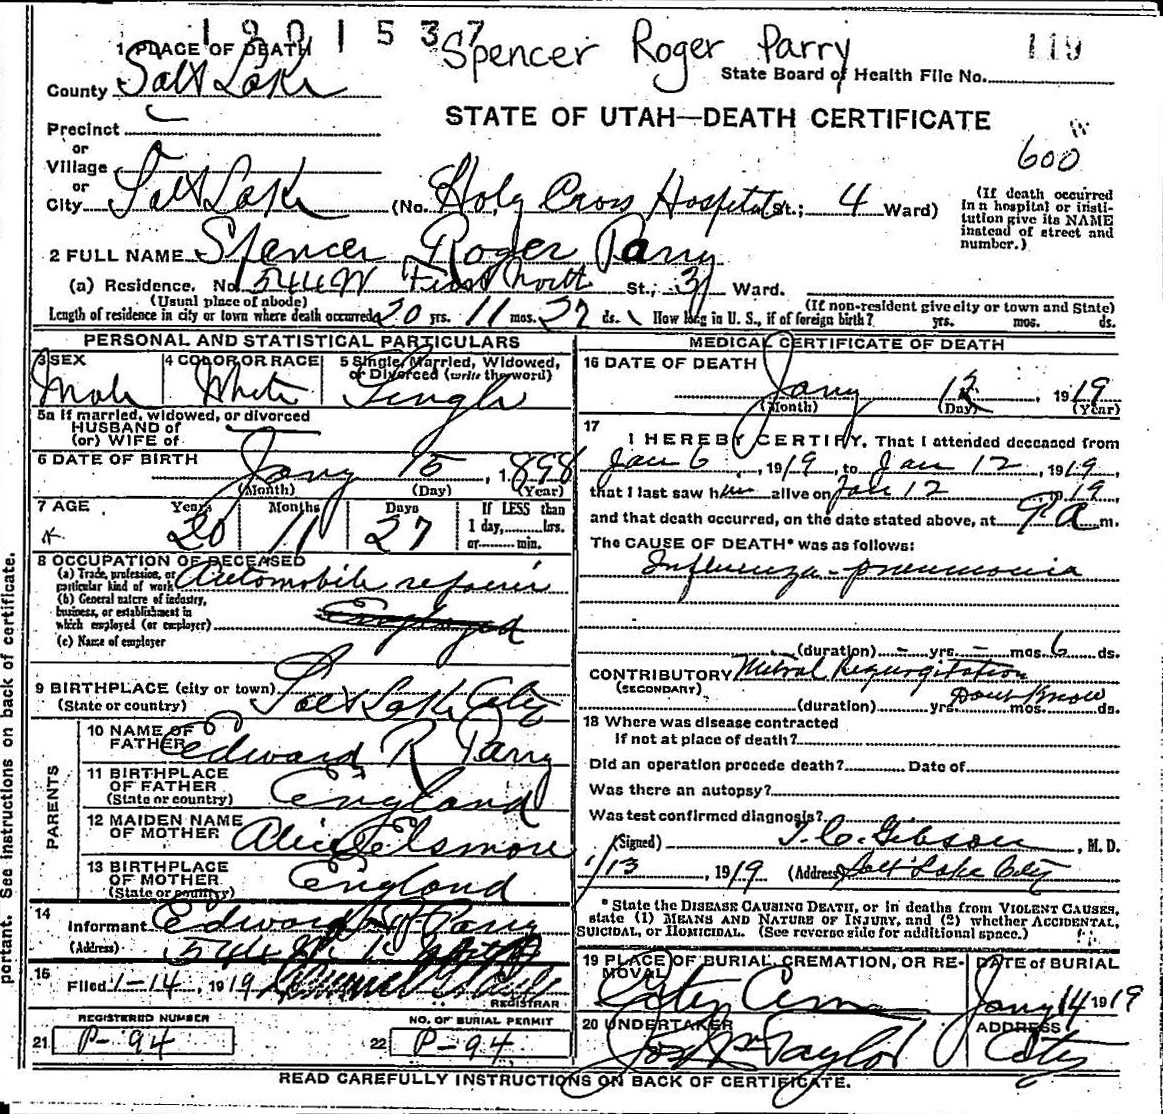 1901537
Spencer Roger Parry
119
1 PLACE OF DEATH
State Board of Health File No.
County Salt Lake
STATE OF UTAH—DEATH CERTIFICATE
Precinct
or
Village
or
City Salt Lake (No. Holy Cross Hospital St.; 4 Ward)
600
(If death occurred in a hospital or institution give its NAME instead of street and number.)
2 FULL NAME Spencer Roger Parry
(a) Residence. No. 544 W First North St.; 3 Ward.
(Usual place of abode)
(If non-resident give city or town and State)
Length of residence in city or town where death occurred 20 yrs. 11 mos. 27 ds. How long in U. S., if of foreign birth? yrs. mos. ds.
PERSONAL AND STATISTICAL PARTICULARS
3 SEX Male
4 COLOR OR RACE White
5 Single, Married, Widowed, or Divorced (write the word) Single
5a If married, widowed, or divorced
HUSBAND of
(or) WIFE of
6 DATE OF BIRTH Jany 15, 1898
(Month) (Day) (Year)
7 AGE Years 20 Months 11 Days 27
If LESS than 1 day, hrs. or min.
8 OCCUPATION OF DECEASED
(a) Trade, profession, or particular kind of work Automobile
(b) General nature of industry, business, or establishment in which employed (or employer) Employed
(c) Name of employer
9 BIRTHPLACE (city or town) Salt Lake City
(State or country)
PARENTS
10 NAME OF FATHER Edward R Parry
11 BIRTHPLACE OF FATHER England
(State or country)
12 MAIDEN NAME OF MOTHER Alice Elsmore
13 BIRTHPLACE OF MOTHER England
(State or country)
14 Informant Edward R Parry
(Address) 544 W.
15 Filed 1-14, 1919
REGISTRAR
REGISTERED NUMBER
21 P-94
NO. OF BURIAL PERMIT
22 P-94
MEDICAL CERTIFICATE OF DEATH
16 DATE OF DEATH
Jany 12, 1919
(Month) (Day) (Year)
17
I HEREBY CERTIFY, That I attended deceased from
Jan 6, 1919, to Jan 12, 1919,
that I last saw him alive on Jan 12 19
and that death occurred, on the date stated above, at 9 a m.
The CAUSE OF DEATH* was as follows:
Influenza-pneumonia
(duration) - yrs. - mos. 6 ds.
CONTRIBUTORY Mitral Regurgitation
(SECONDARY)
(duration) yrs. Dont Know mos. ds.
18 Where was disease contracted
If not at place of death?
Did an operation precede death? Date of
Was there an autopsy?
Was test confirmed diagnosis?
(Signed) T. C. Gibson, M. D.
1/13, 1919 (Address) Salt Lake City
* State the DISEASE CAUSING DEATH, or in deaths from VIOLENT CAUSES,
state (1) MEANS AND NATURE OF INJURY, and (2) whether ACCIDENTAL,
SUICIDAL, or HOMICIDAL. (See reverse side for additional space.)
19 PLACE OF BURIAL, CREMATION, OR REMOVAL City Cem
DATE of BURIAL
Jany 14 1919
20 UNDERTAKER Jos Wm Taylor
ADDRESS City
READ CAREFULLY INSTRUCTIONS ON BACK OF CERTIFICATE.
portant. See instructions on back of certificate.